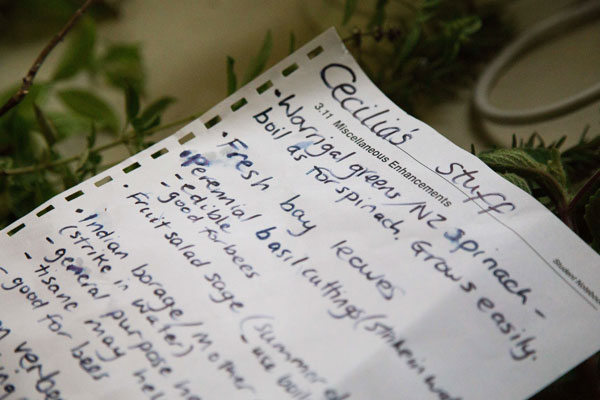 Cecilia's stuff
3.11 Miscellaneous Enhancements
• Warrigal greens/NZ spinach -
boil as for spinach. Grows easily.
• Fresh bay leaves
• Perennial basil cuttings (strike in
- edible
- good for bees
• Fruit salad sage (summer
- use
• Indian borage/Mother
(strike in water)
- general purpose
- tisane may
- good for bees
Student Notebook